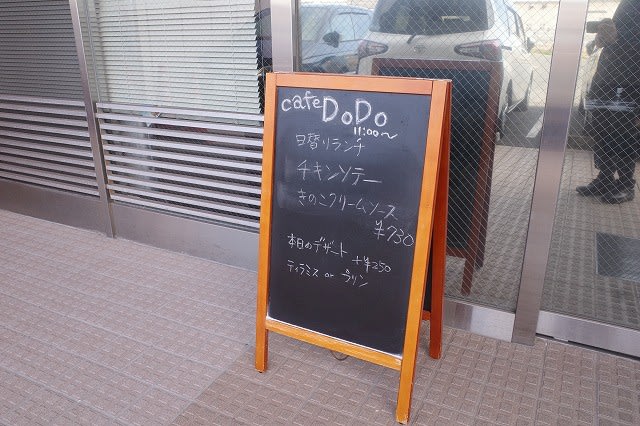 cafe DoDo
11:00~
日替りランチ
チキンソテー
きのこクリームソース
¥730
本日のデザート +¥250
ティラミス or プリン